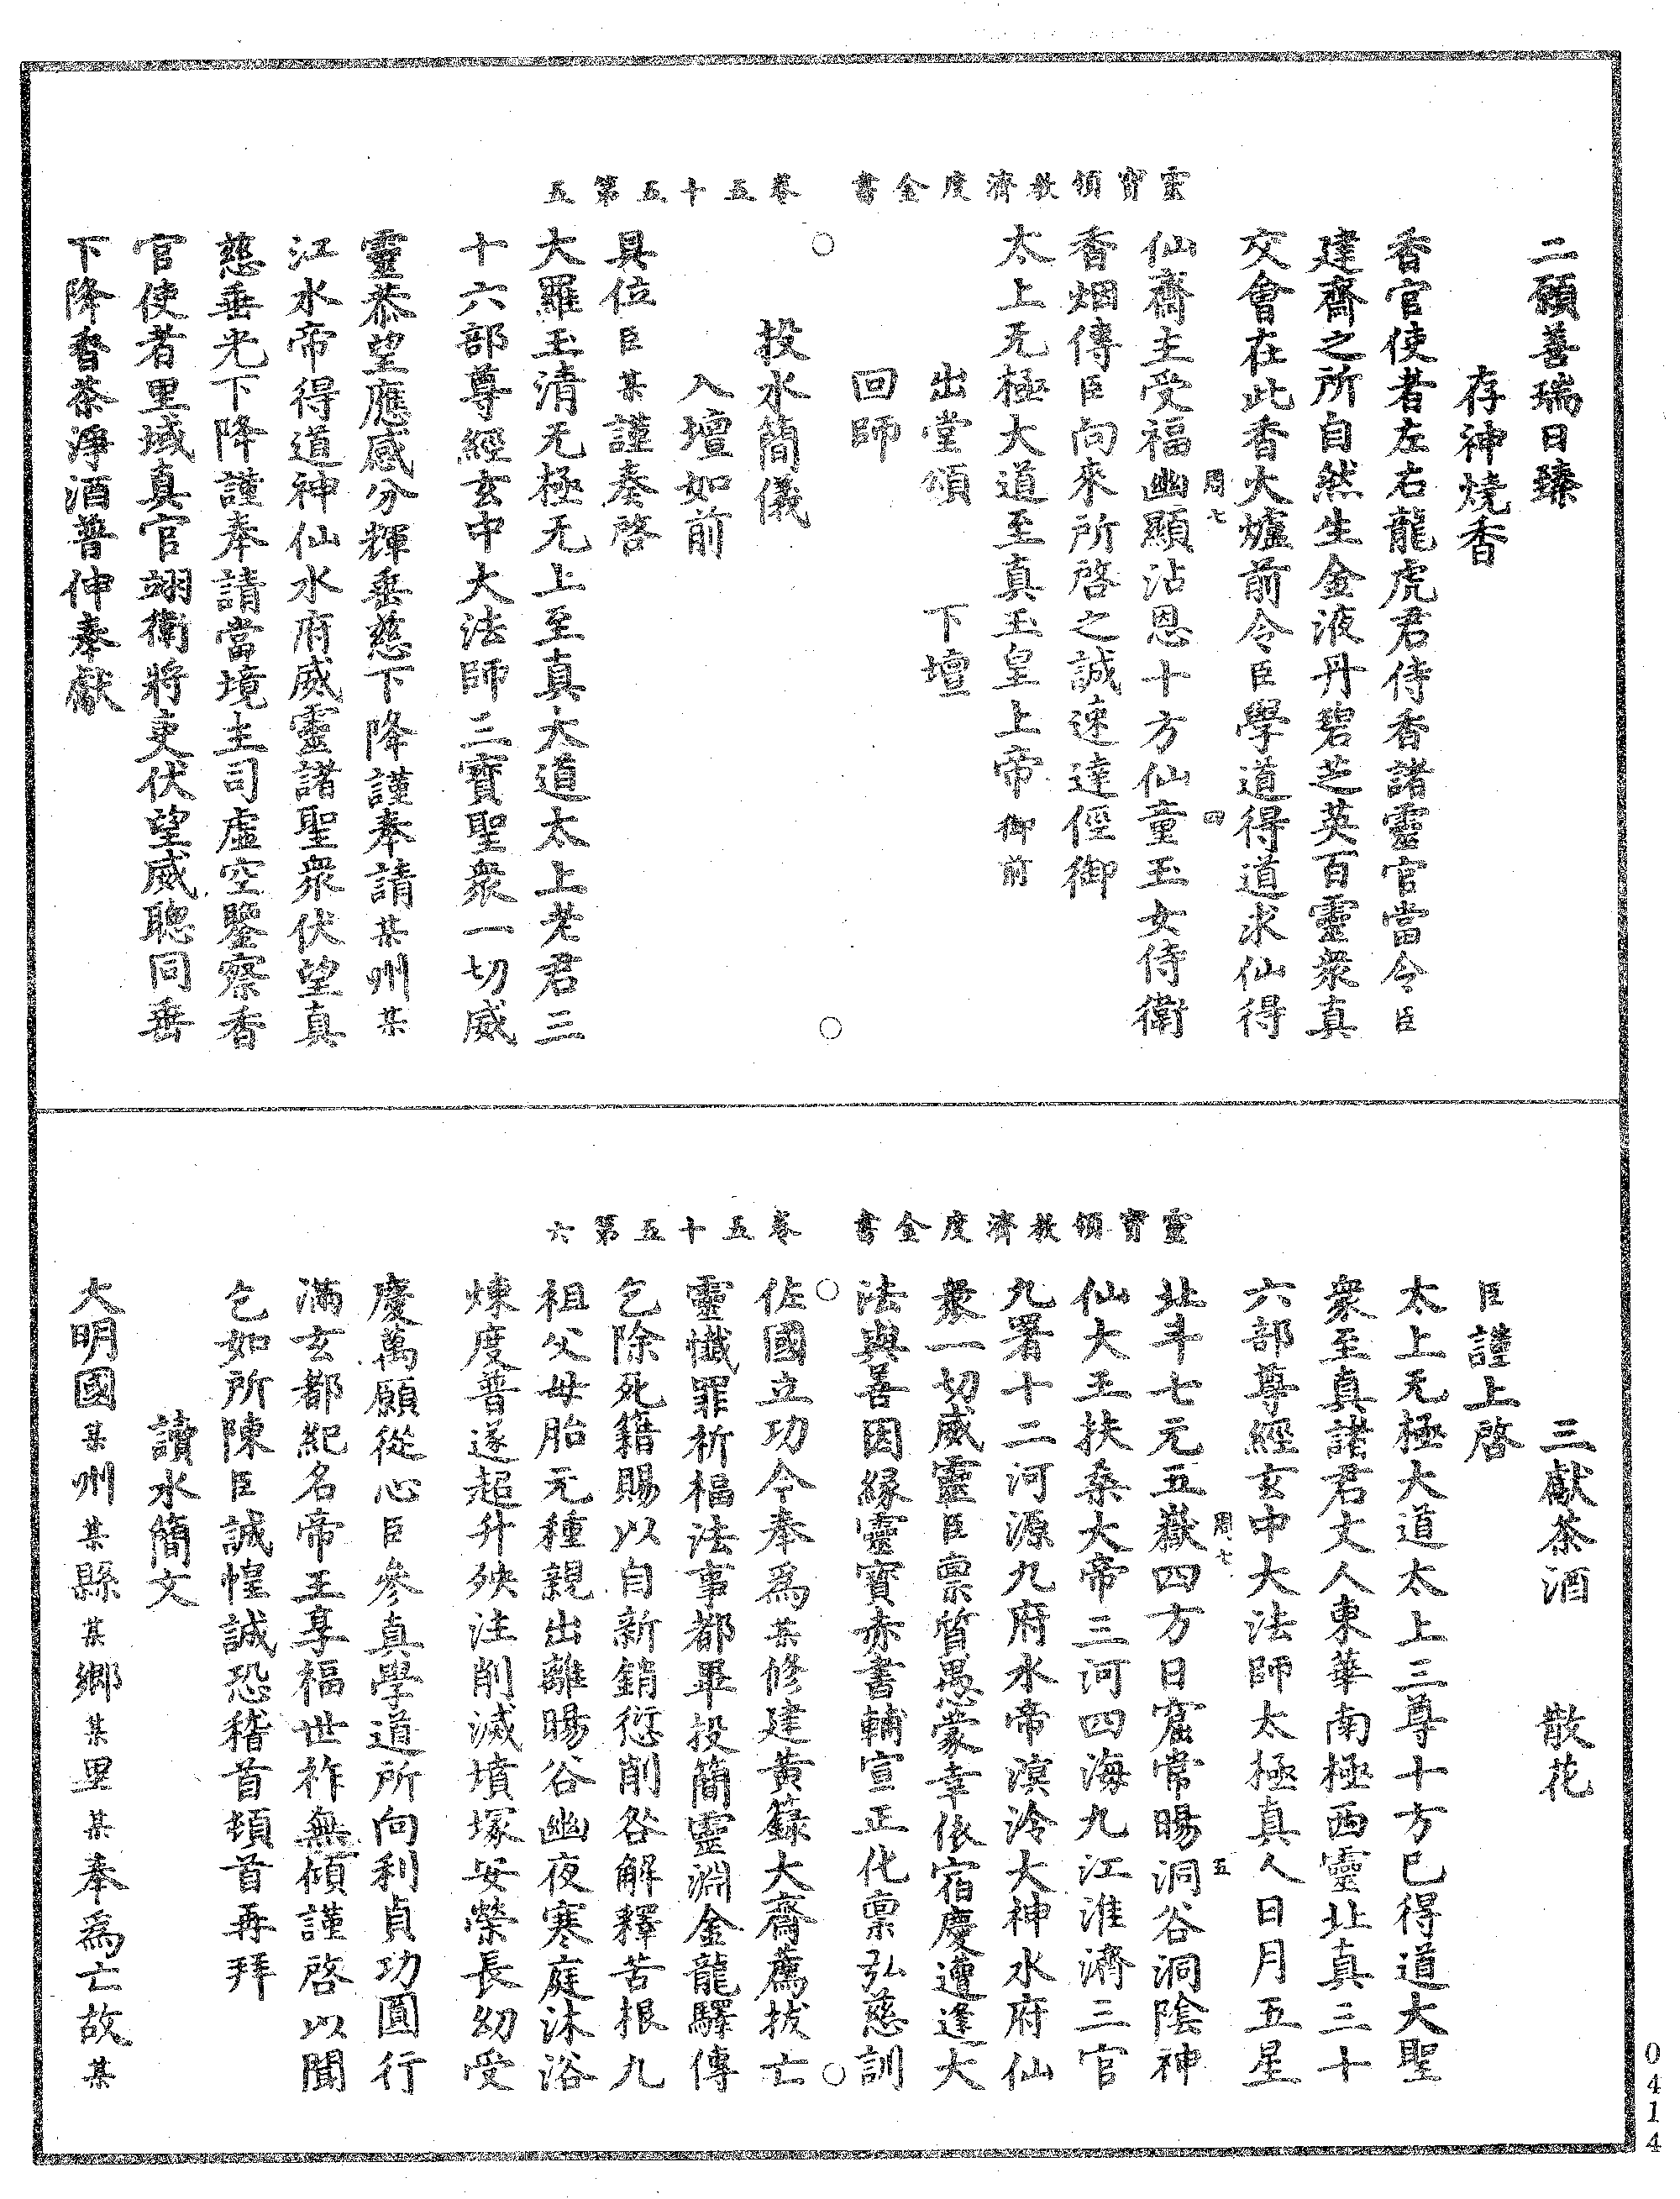 靈寶領教濟度金書　卷五十五第五
二願善瑞日臻
存神燒香
香官使者左右龍虎君侍香諸靈官當令臣
建齋之所自然生金液丹碧芝英百靈衆真
交會在此香火爐前令臣學道得道求仙得
周七　四
仙齋主受福幽顯沾恩十方仙童玉女侍衛
香烟傳臣向來所啓之誠速達徑御
太上无極大道至真玉皇上帝御前
出堂頌　下壇
回師
投水簡儀
入壇如前
具位臣某謹奏啓
大羅玉清无極无上至真大道太上老君三
十六部尊經玄中大法師三寶聖衆一切威
靈恭望應感分輝垂慈下降謹奉請某州某
江水帝得道神仙水府威靈諸聖衆伏望真
慈垂光下降謹奉請當境主司虛空鑒察香
官使者里域真官翊衛將吏伏望威聰同垂
下降香茶淨酒普伸奉獻
靈寶領教濟度金書　卷五十五第六
三獻茶酒　散花
臣謹上啓
太上无極大道太上三尊十方已得道大聖
衆至真諸君丈人東華南極西靈北真三十
六部尊經玄中大法師太極真人日月五星
周七　五
北斗七元五嶽四方日窟常暘洞谷洞陰神
仙大王扶桑大帝三河四海九江淮濟三官
九署十二河源九府水帝溟泠大神水府仙
衆一切威靈臣禀質愚蒙幸依宿慶遭逢大
法與善因緣靈寶赤書輔宣正化禀弘慈訓
佐國立功今奉為某修建黃籙大齋薦拔亡
靈懺罪祈福法事都畢投簡靈淵金龍驛傳
乞除死籍賜以自新銷愆削咎解釋苦根九
祖父母胎元種親出離暘谷幽夜寒庭沐浴
煉度普遂超升殃注削滅墳塚安榮長幼受
慶萬願從心臣參真學道所向利貞功圓行
滿玄都紀名帝王享福世祚無傾謹啓以聞
乞如所陳臣誠惶誠恐稽首頓首再拜
讀水簡文
大明國某州某縣某鄉某里某奉為亡故某
0414